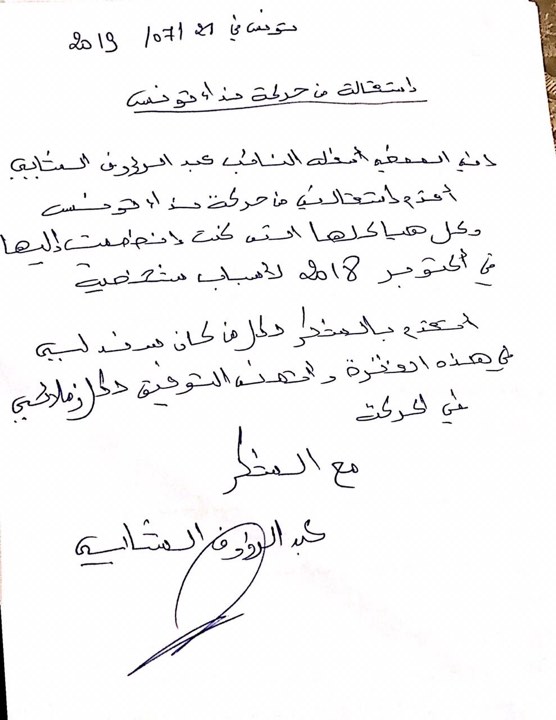 تونس في 21 /07/ 2019
إستقالة من حركة نداء تونس
إني الممضي أسفله النائب عبد الرؤوف الشابي
أقدم إستقالتي من حركة نداء تونس
وكل هياكلها التي كنت إنضممت إليها
في أكتوبر 2018 لأسباب شخصية
أتقدم بالشكر لكل من كان سند لي
في هذه الفترة و أتمنى التوفيق لكل زملائي
في الحركة
مع الشكر
عبد الرؤوف الشابي